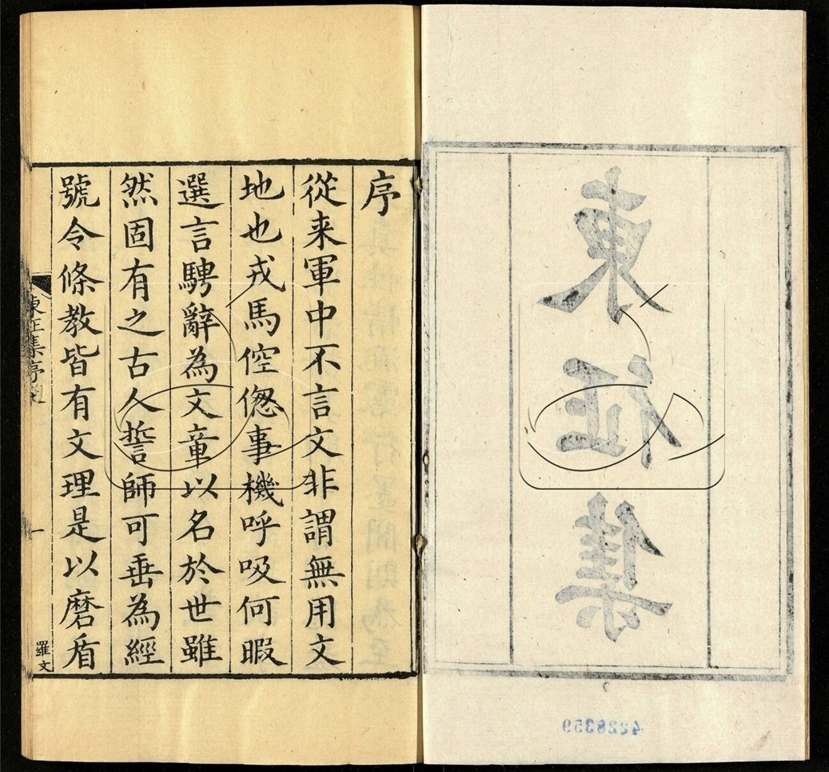 東征集
序
從来軍中不言文非謂無用文
地也戎馬倥偬事機呼吸何暇
選言騁辭為文章以名於世雖
然固有之古人誓師可垂為經
號令條教皆有文理是以磨盾
東征集序
一
羅文